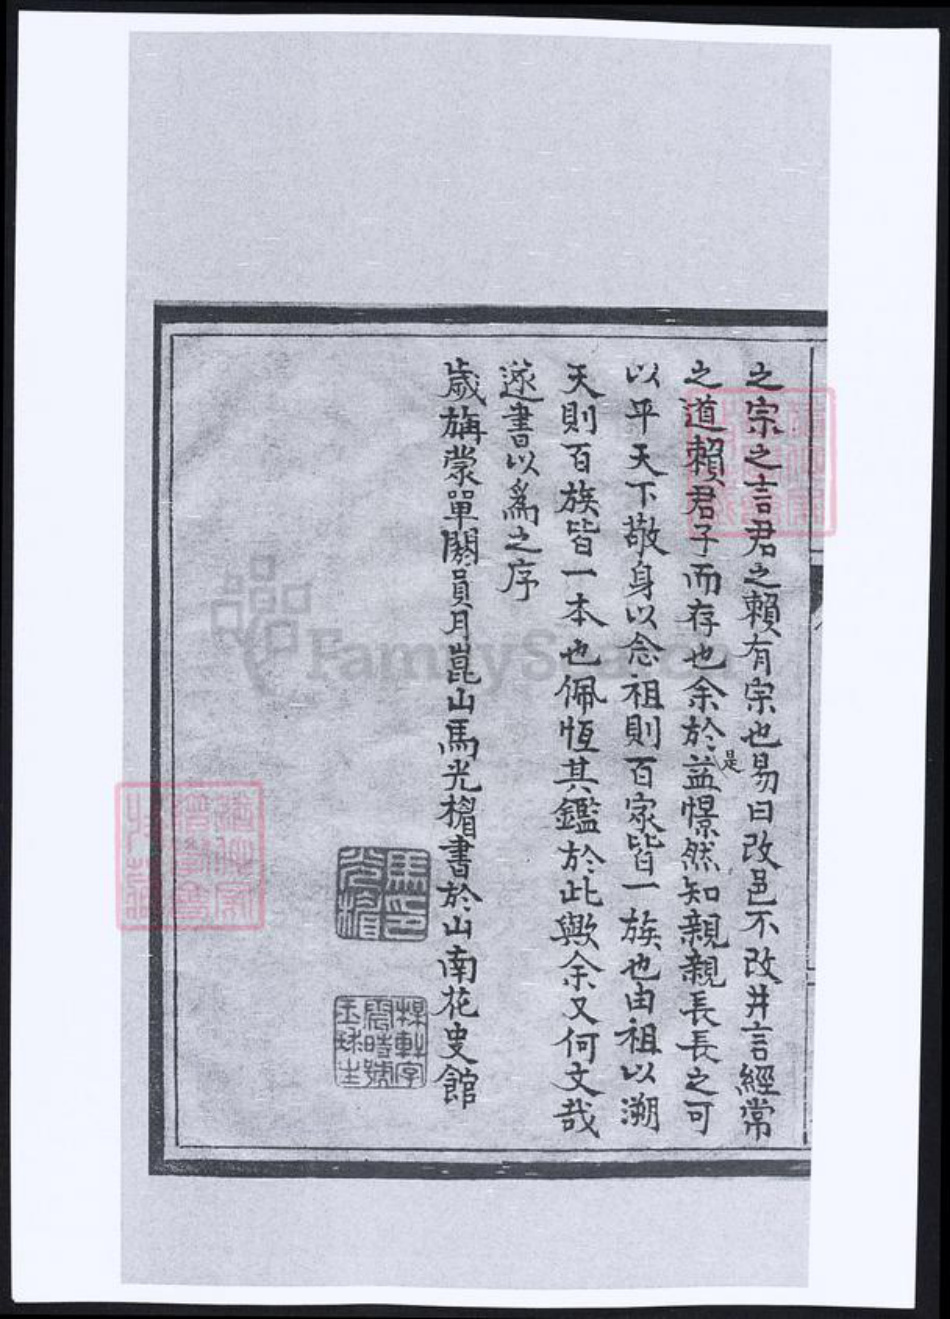 之宗之言君之賴有宗也易曰改邑不改井言經常
之道賴君子而存也余於是益憬然知親親長長之可
以平天下敬身以念祖則百家皆一族也由祖以溯
天則百族皆一本也佩恆其鑑於此歟余又何文哉
遂書以為之序
歲旃蒙單閼員月崑山馬光楣書於山南花史館
馬光楣印
楳軒字
震時號
玉球生
FamilySearch